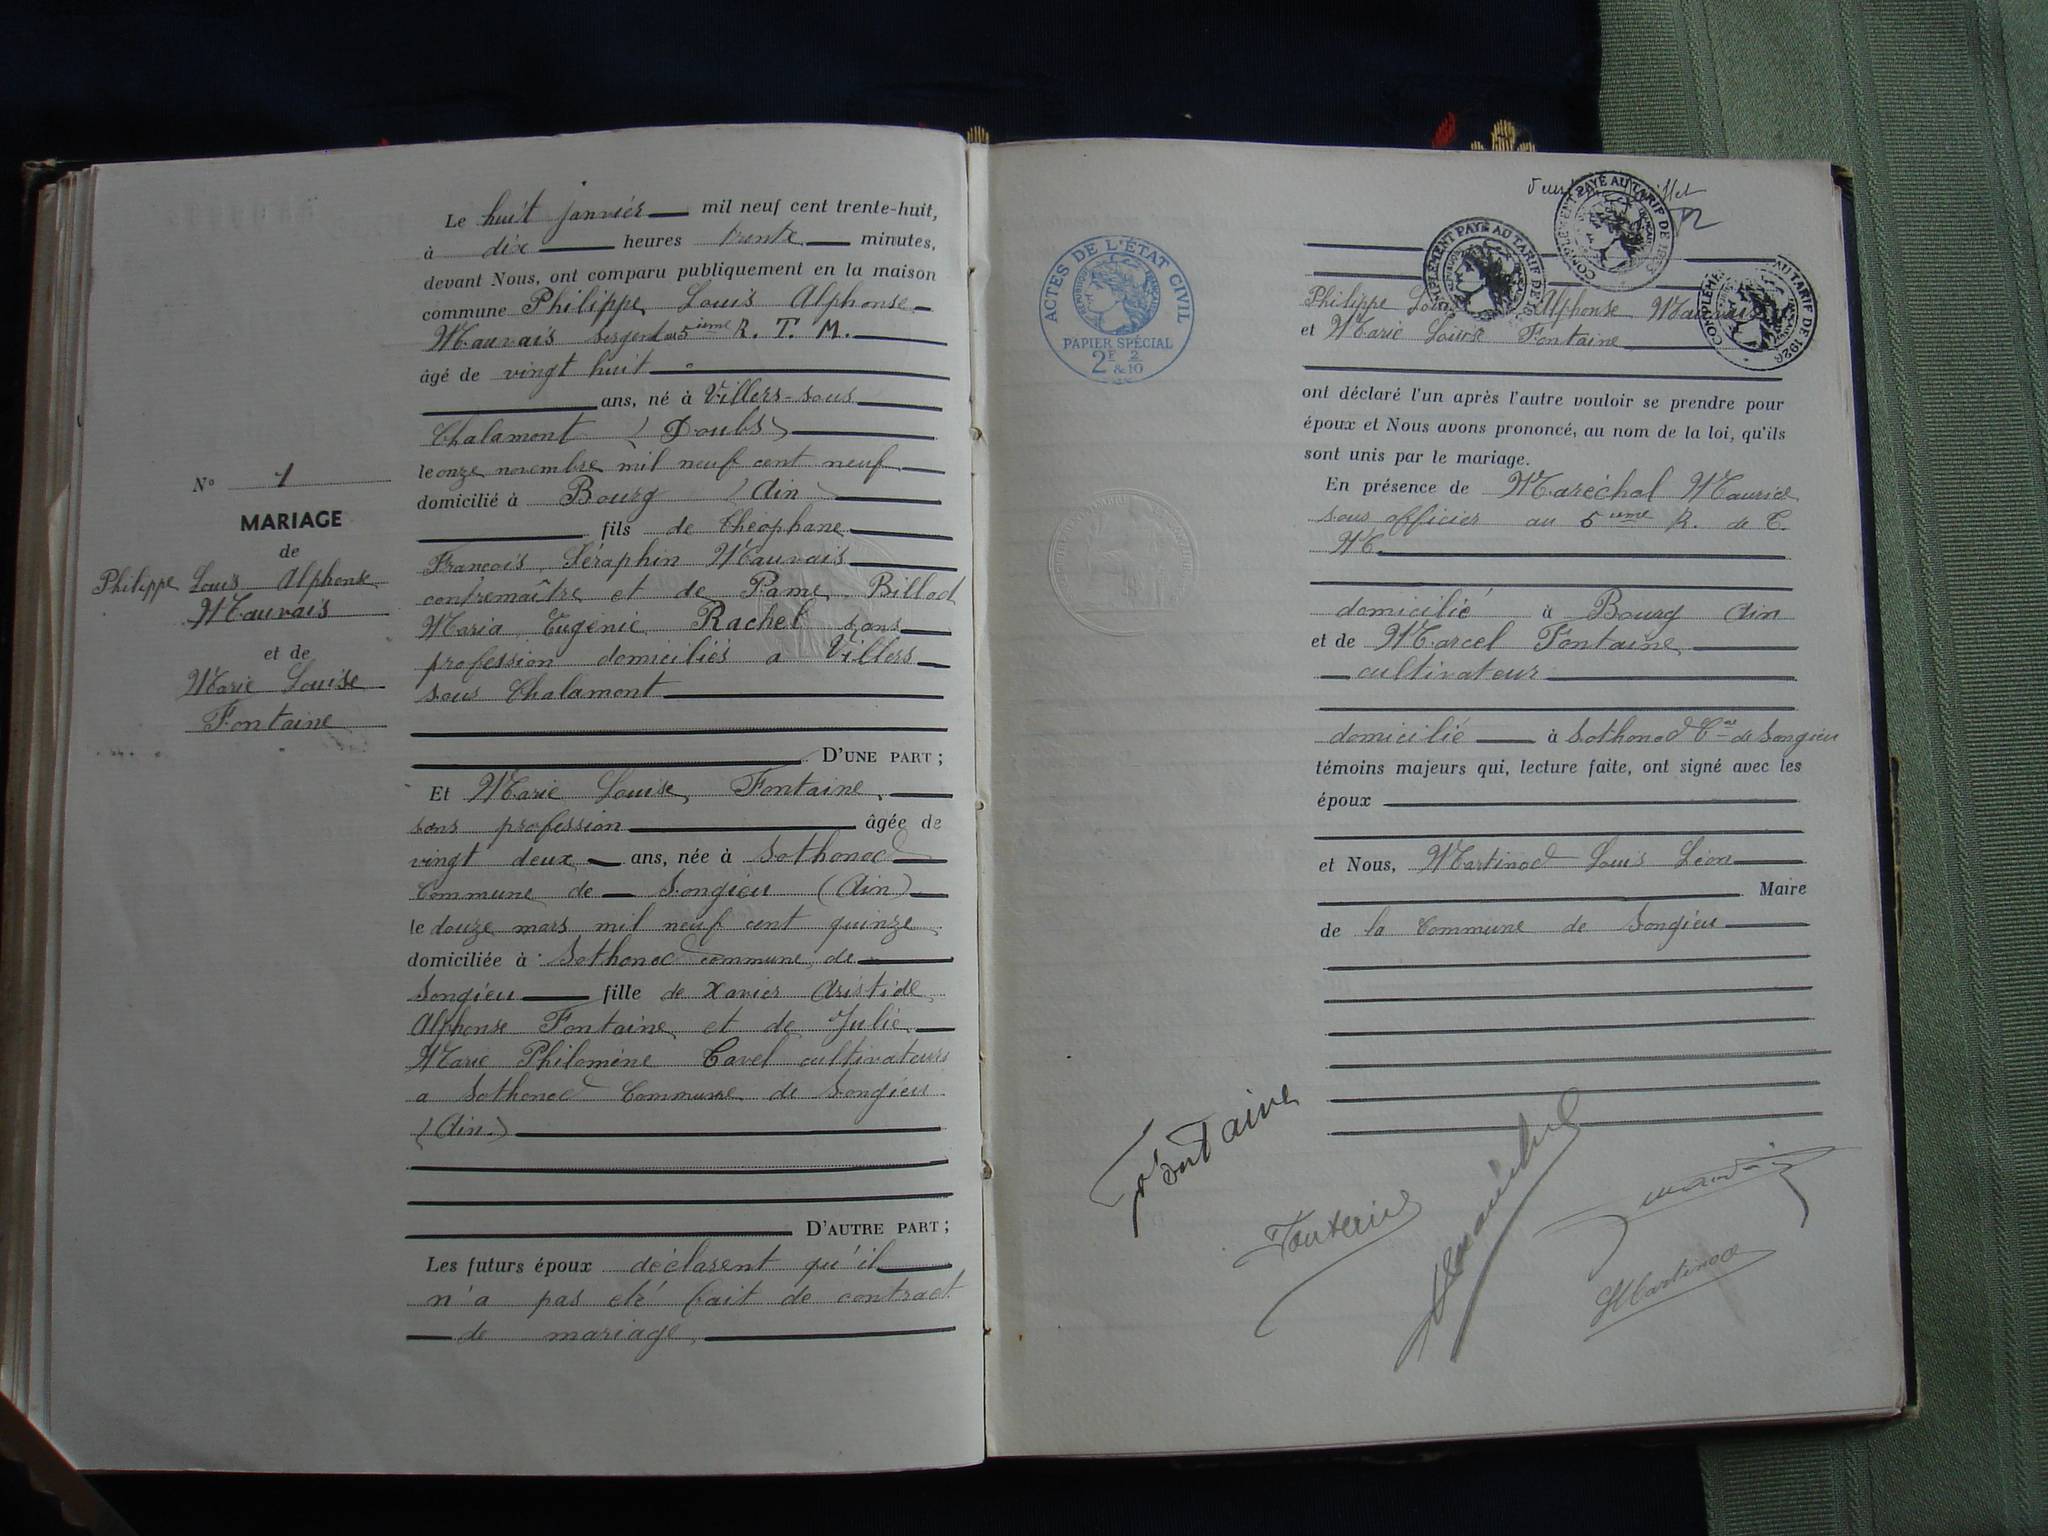 N° 1
MARIAGE
de
Philippe Louis Alphonse
Mauvais
et de
Marie Louise
Fontaine
Le huit janvier mil neuf cent trente-huit,
à dix heures trente minutes,
devant Nous, ont comparu publiquement en la maison
commune Philippe Louis Alphonse
Mauvais sergent au 5ième R. T. M.
âgé de vingt huit
ans, né à Villers-sous
Chalamont (Doubs)
le onze novembre mil neuf cent neuf
domicilié à Bourg (Ain)
fils de Théophane
François Séraphin Mauvais
contremaître et de Dame Billod
Maria Eugénie Rachel sans
profession domiciliés a Villers
sous Chalamont
D'UNE PART;
Et Marie Louise Fontaine
sans profession âgée de
vingt deux ans, née à Sothonod
Commune de Songieu (Ain)
le douze mars mil neuf cent quinze
domiciliée à Sothonod commune de
Songieu fille de Xavier Aristide
Alphonse Fontaine et de Julie
Marie Philomène Cavel cultivateurs
a Sothonod Commune de Songieu
(Ain)
D'AUTRE PART;
Les futurs époux déclarent qu'il
n'a pas été fait de contract
de mariage
ACTES DE L'ÉTAT CIVIL
PAPIER SPÉCIAL
2F 2
& 10
COMPLÉMENT PAYÉ AU TARIF DE 1926
COMPLÉMENT PAYÉ AU TARIF DE 1926
COMPLÉMENT AU TARIF DE 1926
Philippe Louis Alphonse Mauvais
et Marie Louise Fontaine
ont déclaré l'un après l'autre vouloir se prendre pour
époux et Nous avons prononcé, au nom de la loi, qu'ils
sont unis par le mariage.
En présence de Maréchal Maurice
sous officier au 5ieme R. de T.
M.
domicilié à Bourg Ain
et de Marcel Fontaine
cultivateur
domicilié à Sothonod Cne de Songieu
témoins majeurs qui, lecture faite, ont signé avec les
époux
et Nous, Martinod Louis Léon
Maire
de la Commune de Songieu
Fontaine
Fontaine
Maréchal
Mauvais
Martinod